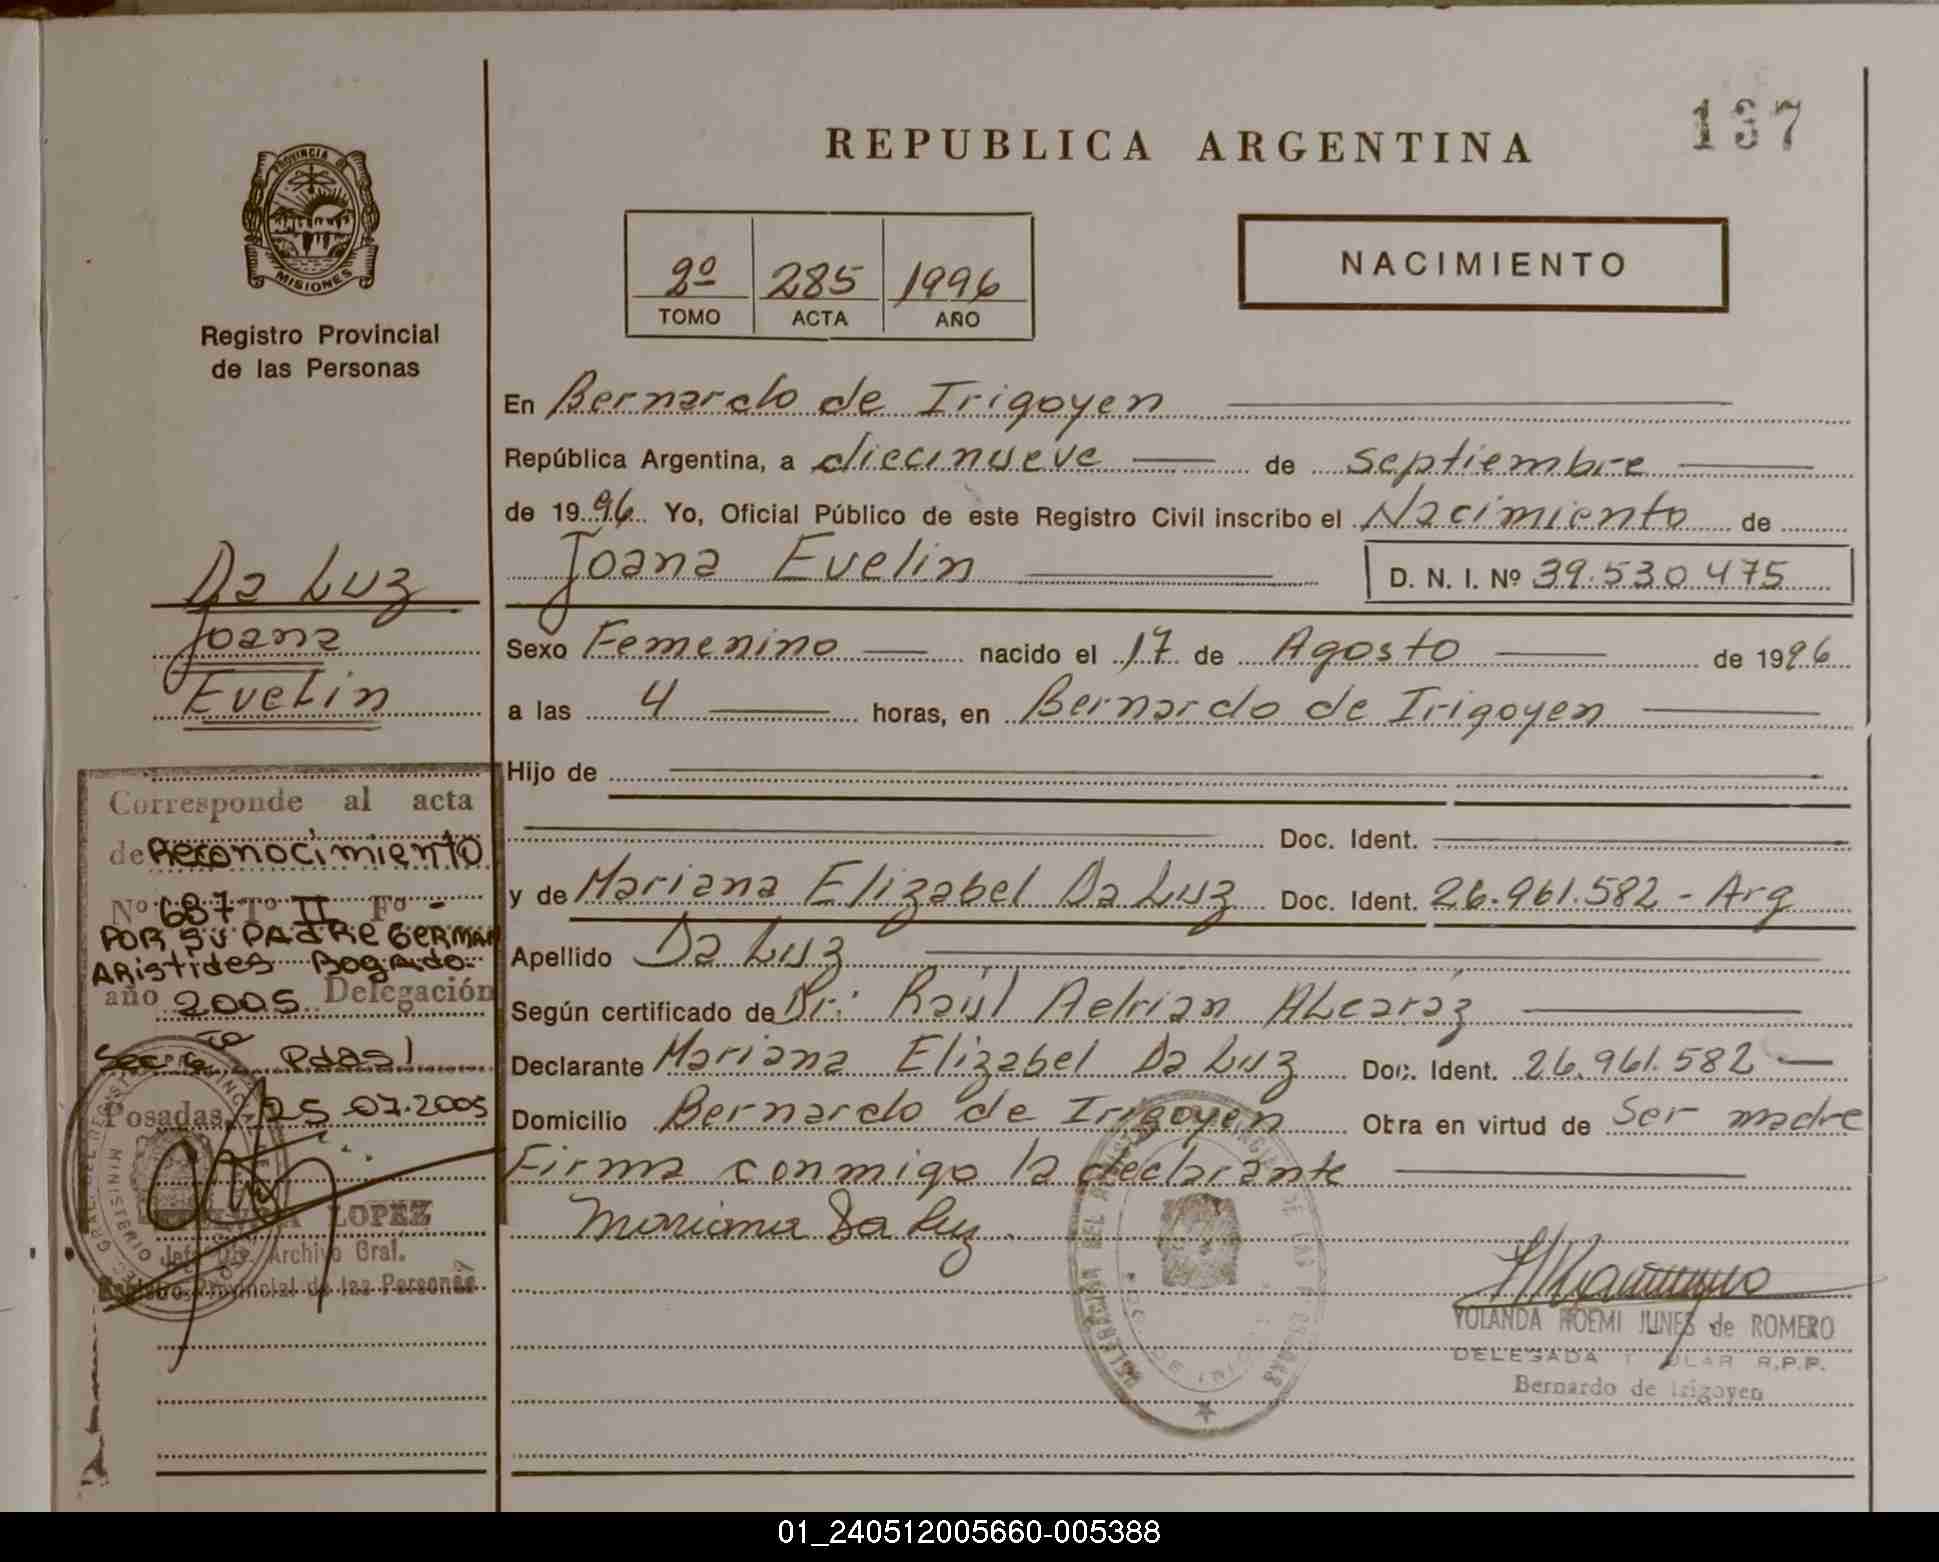 137
REPUBLICA ARGENTINA
PROVINCIA DE
MISIONES
Registro Provincial
de las Personas
2º 285 1996
TOMO ACTA AÑO
NACIMIENTO
En Bernardo de Irigoyen
República Argentina, a diecinueve de septiembre
de 1996 Yo, Oficial Público de este Registro Civil inscribo el Nacimiento de
Joana Evelin D. N. I. Nº 39.530.475
Sexo Femenino nacido el 17 de Agosto de 1996
a las 4 horas, en Bernardo de Irigoyen
Hijo de
Doc. Ident.
y de Mariana Elizabel Da Luz Doc. Ident. 26.961.582 - Arg
Apellido Da Luz
Según certificado de Dr: Raúl Adrian Alcaráz
Declarante Mariana Elizabel Da Luz Doc. Ident. 26.961.582
Domicilio Bernardo de Irigoyen Obra en virtud de Ser madre
Firma conmigo la declarante
Mariana Da Luz
YOLANDA NOEMI JUNES de ROMERO
DELEGADA TITULAR R.P.P.
Bernardo de Irigoyen
Da Luz
Joana
Evelin
Corresponde al acta
de Reconocimiento
Nº 687 Tº II Fº -
POR SU PADRE GERMAN
ARISTIDES Bogado.
año 2005 Delegación
Secc 1ra Pdas
Posadas, 25.07.2005
LOPEZ
Archivo Gral.
Registro Provincial de las Personas
01_240512005660-005388